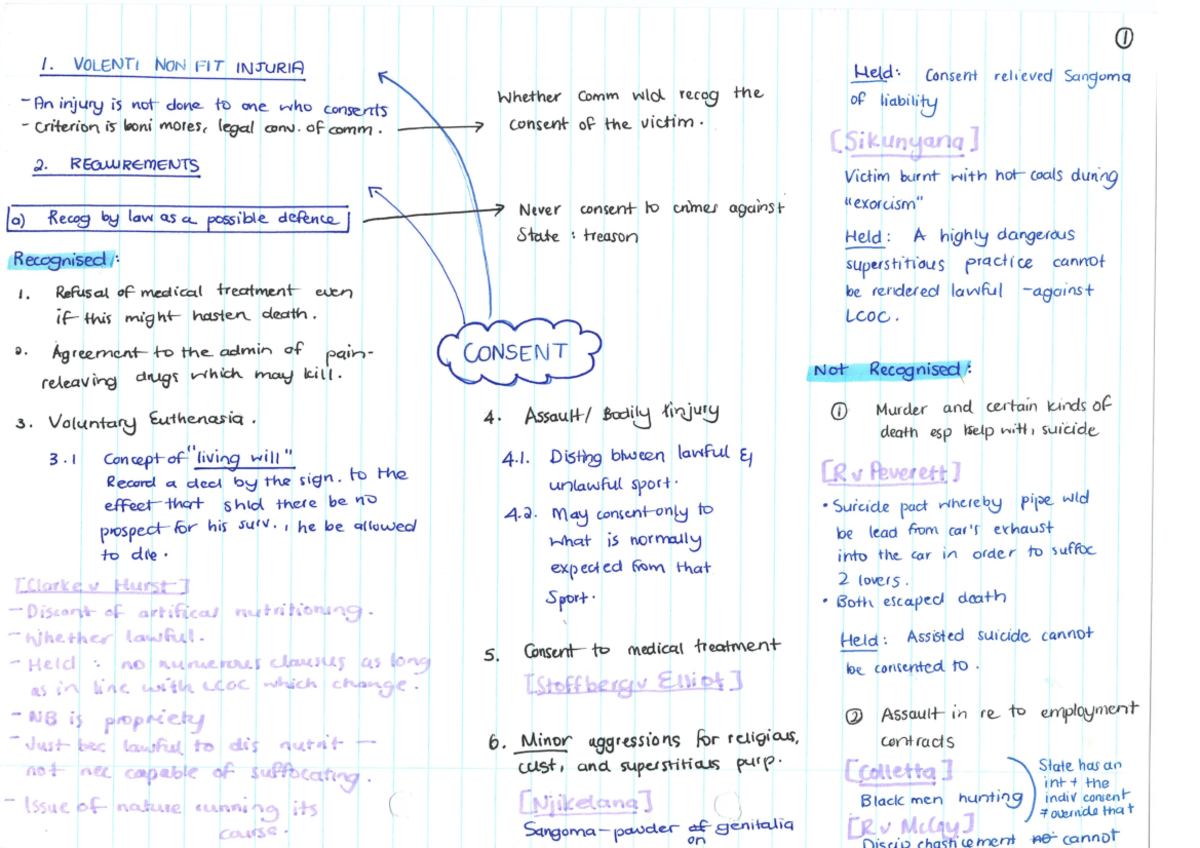 ①
1. VOLENTI NON FIT INJURIA
- An injury is not done to one who consents
- criterion is boni mores, legal conv. of comm.
Whether Comm wld recog the
consent of the victim.
2. REQUIREMENTS
a) Recog by law as a possible defence
Never consent to crimes against
State : treason
Recognised:
1. Refusal of medical treatment even
if this might hasten death.
2. Agreement to the admin of pain-
releaving drugs which may kill.
3. Voluntary Euthenasia.
3.1 Concept of "living will"
Record a decl by the sign. to the
effect that shld there be no
prospect for his surv., he be allowed
to die.
[Clarke v Hurst]
- Discont of artifical nutritioning.
- Whether lawful.
- Held : no numerous clausus as long
as in line with LCOC which change.
- NB is propriety
- Just bec lawful to dis nutrit —
not nec capable of suffocating.
- Issue of nature running its
course.
CONSENT
4. Assault/ Bodily Injury
4.1. Disting btween lawful &
unlawful sport.
4.2. May consent only to
what is normally
expected from that
Sport.
5. Consent to medical treatment
[Stoffberg v Elliot]
6. Minor aggressions for religious,
cust, and superstitious purp.
[Njikelana]
Sangoma - powder of on genitalia
Held: Consent relieved Sangoma
of liability
[Sikunyana]
Victim burnt with hot coals during
"exorcism"
Held: A highly dangerous
superstitious practice cannot
be rendered lawful - against
LCOC.
Not Recognised:
① Murder and certain kinds of
death esp help with suicide
[R v Peverett]
• Suicide pact whereby pipe wld
be lead from car's exhaust
into the car in order to suffoc
2 lovers.
• Both escaped death
Held: Assisted suicide cannot
be consented to.
② Assault in re to employment
contracts
[Colletta]
Black men hunting
[R v McCoy]
Discip chasticement no cannot
State has an
int + the
indiv consent
≠ override that